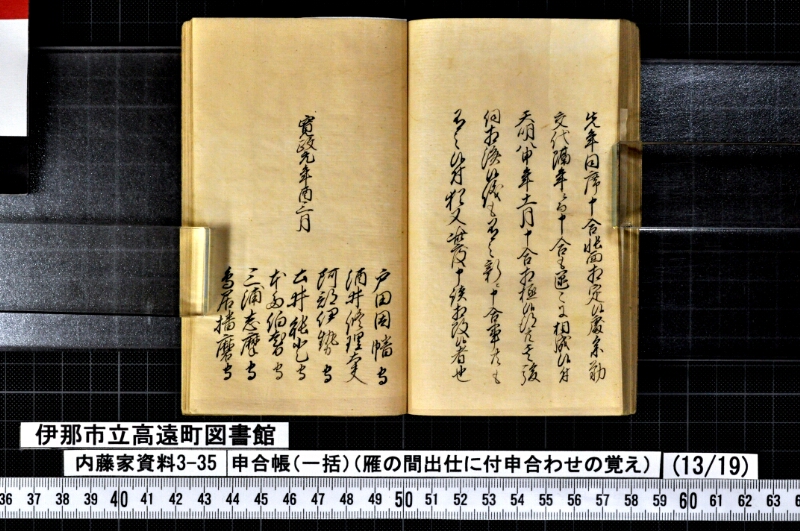 先年同席十合帳面相定候處参勤
交代隔年ニ而十合も區々ニ相成候付
天明八申年十一月十合相極候得共其後
伺相済候儀も有之新ニ十合事共も
有之候付猶又此度十談相改候者也
寛政元年酉二月
戸田因幡守
酒井修理大夫
阿部伊勢守
土井能登守
本多伯耆守
三浦志摩守
鳥居播磨守
伊那市立高遠町図書館
内藤家資料3-35 申合帳(一括)(雁の間出仕に付申合わせの覚え) (13/19)
36 37 38 39 40 41 42 43 44 45 46 47 48 49 50 51 52 53 54 55 56 57 58 59 60 61 62 63